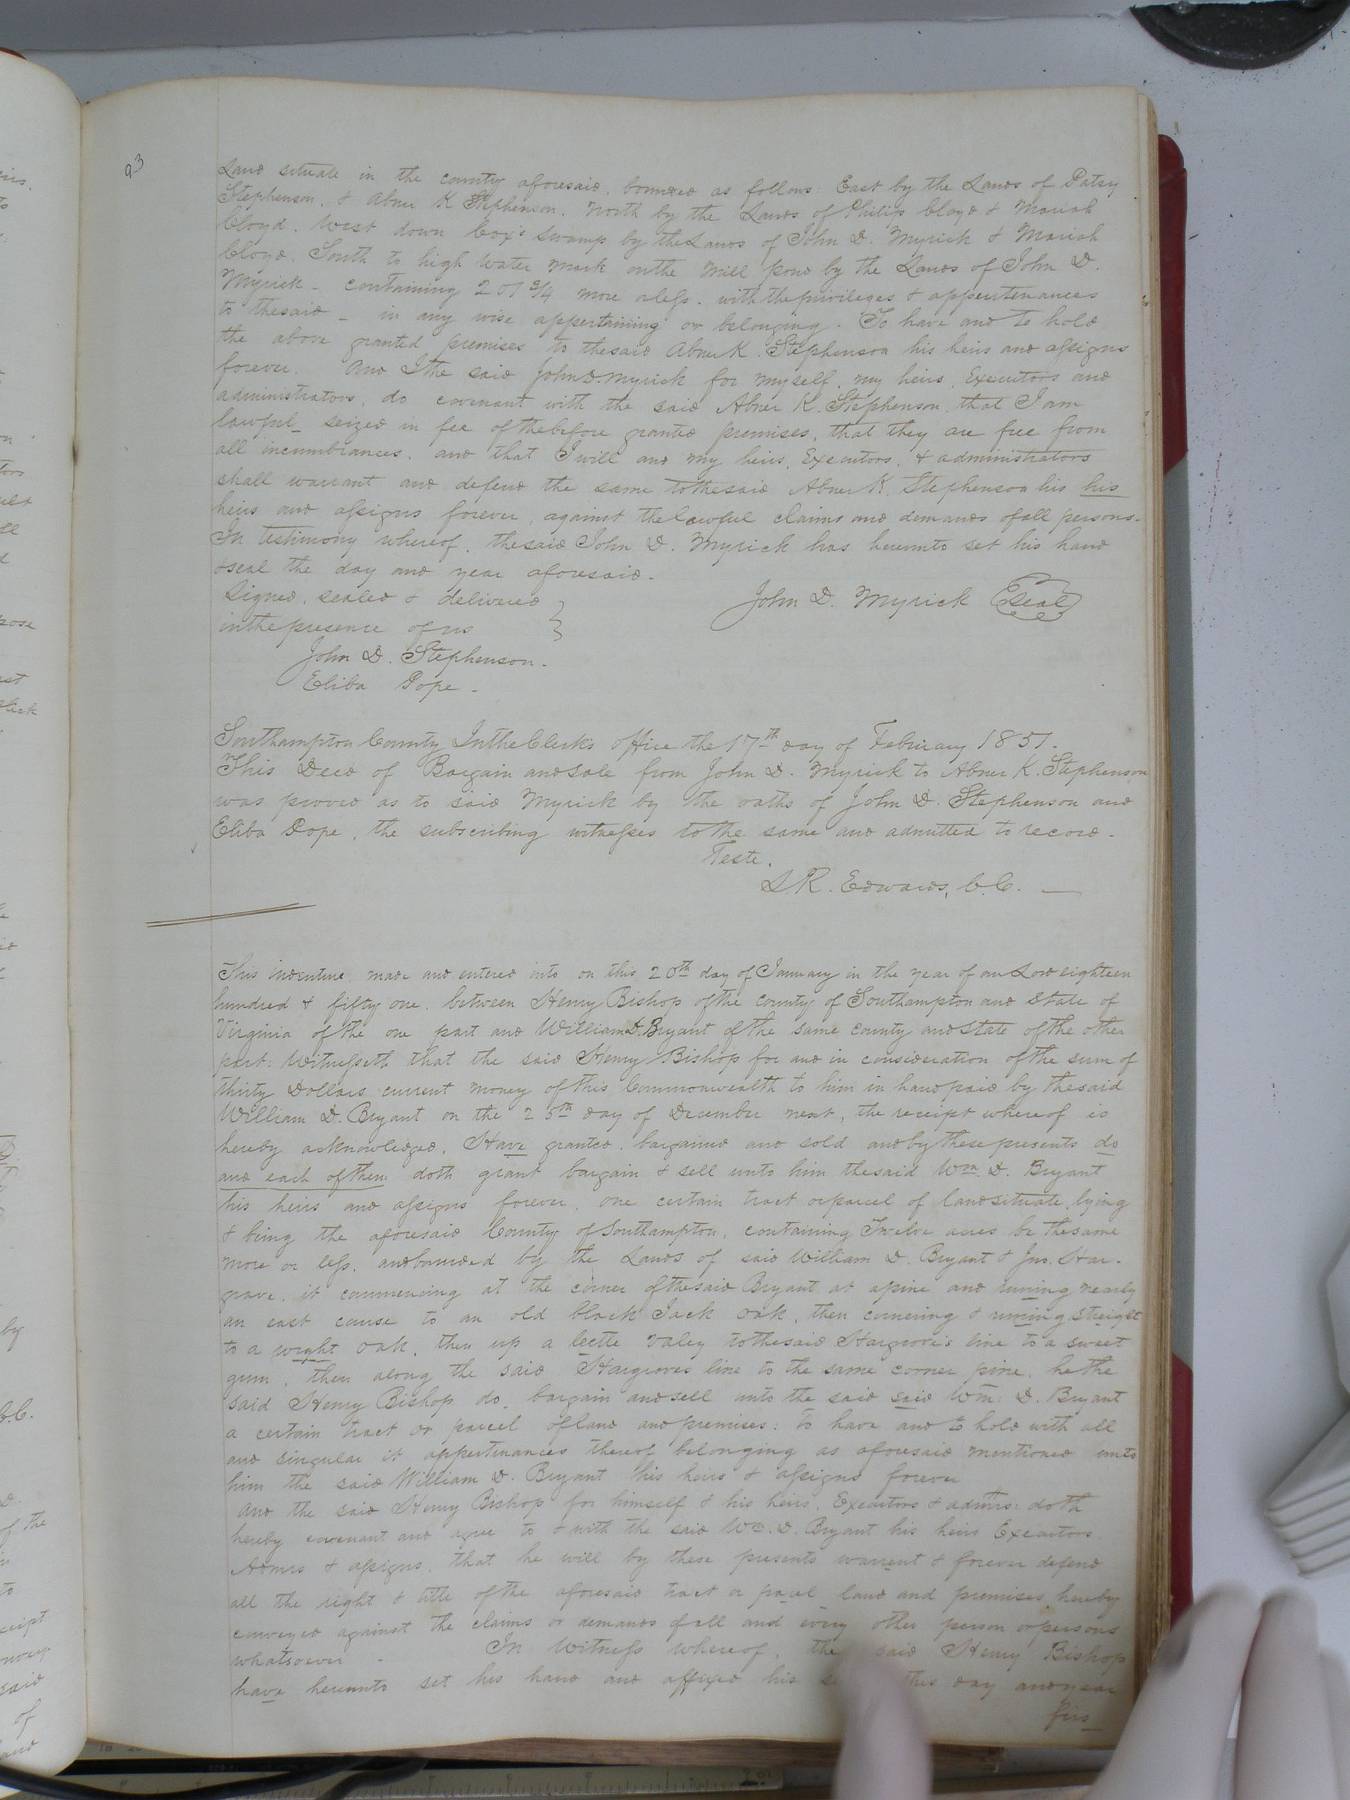 93
Land situate in the county aforesaid, bounded as follows: East by the Lands of Patsy
Stephenson, & Abner K Stephenson. North by the Lands of Philip Cloyd & Mariah
Cloyd. West down Cox's Swamp by the Lands of John D. Myrick & Mariah
Cloyd. South to high water mark on the Mill pond by the Lands of John D.
Myrick - containing 201 3/4 more or less. with the privileges & appertenances
to the said _ in any wise appertaining or belonging. To have and to hold
the above granted premises to the said Abner K. Stephenson his heirs and assigns
forever. And I the said John D. Myrick for myself, my heirs, Executors and
administrators, do covenant with the said Abner K. Stephenson, that I am
lawful_ seized in fee of the before granted premises, that they are free from
all incumbrances. and that I will and my heirs, Executors, & administrators
shall warrant and defend the same to the said Abner K. Stephenson his his
heirs and assigns forever, against the lawful claims and demands of all persons.
In testimony whereof, the said John D. Myrick has hereunto set his hand
& seal the day and year aforesaid.
Signed, sealed & delivered John D. Myrick Seal
in the presence of us
John D. Stephenson.
Eliba Pope.
Southampton County In the Clerk's office the 17th day of February 1851.
This Deed of Bargain and Sale from John D. Myrick to Abner K. Stephenson
was proved as to said Myrick by the oaths of John D. Stephenson and
Eliba Pope, the subscribing witnesses to the same and admitted to record.
Teste,
L R. Edwards, C.C.
This indenture made and entered into on this 20th day of January in the year of our Lord eighteen
hundred & fifty one, between Henry Bishop of the County of Southampton and State of
Virginia of the one part and William D. Bryant of the same county and state of the other
part: Witnesseth that the said Henry Bishop for and in consideration of the sum of
thirty Dollars current money of this Commonwealth to him in hand paid by the said
William D. Bryant on the 25th day of December next, the receipt whereof is
hereby acknowledged, Have granted, bargained and sold and by these presents do
and each of them doth grant bargain & sell unto him the said Wm D. Bryant
his heirs and assigns forever, one certain tract or parcel of land situate, lying
& being the aforesaid County of Southampton, containing Twelve acres be the same
more or less, and bounded by the Lands of said William D. Bryant & Jno. Har-
grave, it commencing at the corner of the said Bryant at a pine and runing nearly
an east cause to an old black Jack oak, then cornering & runing streight
to a wright oak, then up a lettle valey to the said Hargrove's line to a sweet
gum, then along the said Hargroves line to the same corner pine, he the
said Henry Bishop do, bargain and sell unto the said said Wm. D. Bryant
a certain tract or parcel of land and premises: to have and to hold with all
and singular it appertinances thereof belonging as aforesaid mentioned unto
him the said William D. Bryant his heirs & assigns forever
And the said Henry Bishop for himself & his heirs, Executors & admrs: doth
hereby covenant and agree to & with the said Wm. D. Bryant his heirs Executors
Admrs & assigns, that he will by these presents warrent & forever defend
all the right & title of the aforesaid tract or pacel land and premises hereby
conveyed against the claims or demands of all and every other person or persons
whatsoever - In Witness whereof, the said Henry Bishop
have hereunto set his hand and affixed his this day and year
firs